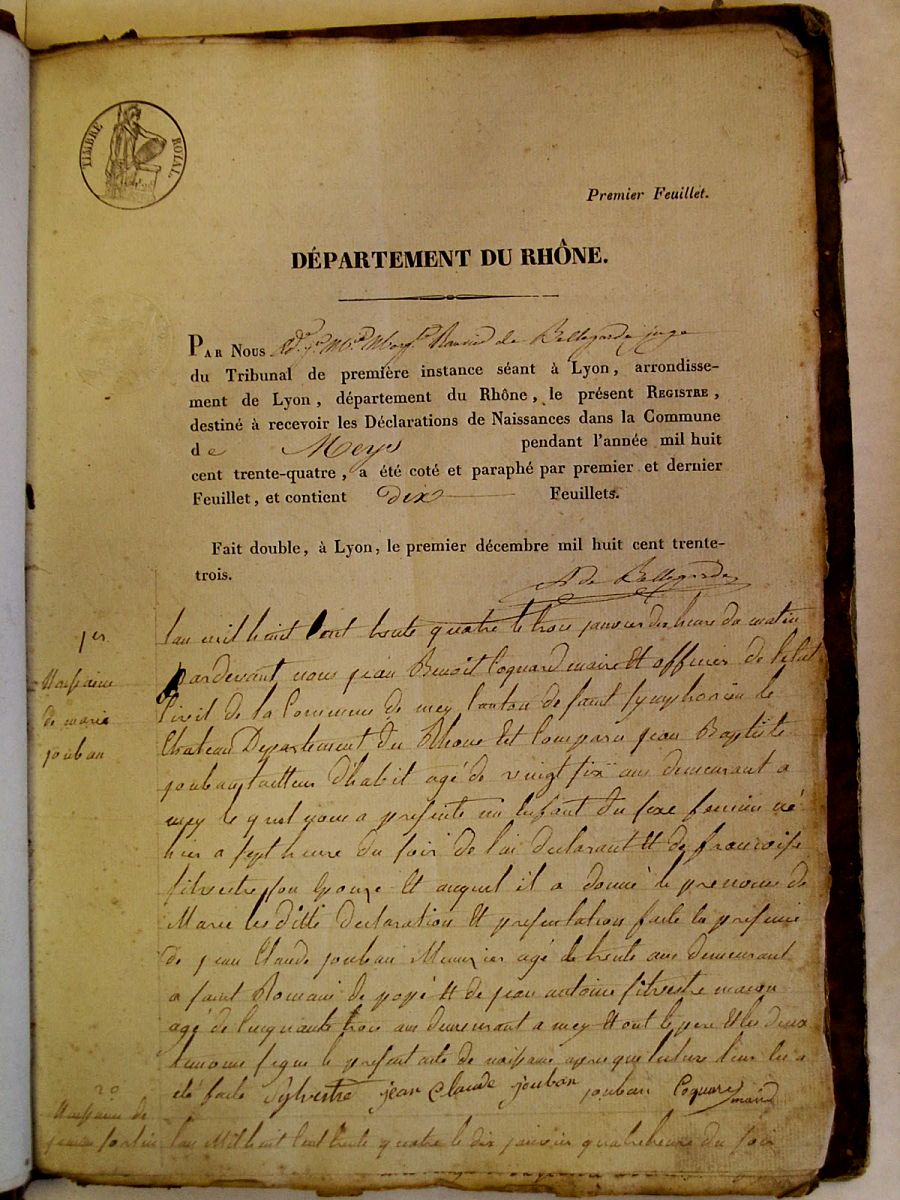 TIMBRE ROYAL
Premier Feuillet.
DÉPARTEMENT DU RHÔNE.
PAR NOUS de Bellegarde juge
du Tribunal de première instance séant à Lyon, arrondisse-
ment de Lyon, département du Rhône, le présent REGISTRE,
destiné à recevoir les Déclarations de Naissances dans la Commune
de Meys pendant l'année mil huit
cent trente-quatre, a été coté et paraphé par premier et dernier
Feuillet, et contient dix Feuillets.
Fait double, à Lyon, le premier décembre mil huit cent trente-
trois.
de Bellegarde
1er
Naissance
de marie
jouban
lan mil huit Cent trente quatre le trois janvier dix heure du matin
pardevant nous jean Benoit Coquard maire Et officier de letat
Civil de la Commune de mey Canton de saint symphorien le
Chateau Departement du Rhone Est Comparu jean Baptiste
jouban tailleur d'habit agé de vingt six ans demeurant a
mey le quel nous a presenté un Enfant du sexe feminin né
hier a sept heure du soir de lui declarant Et de francoise
silvestre son Epouze Et auquel il a donné le prenoms de
Marie les ditte declaration Et presentation faite En presence
de jean Claude jouban Meunier agé de trente ans demeurant
a saint Romain de popé Et de jean antoine silvestre macon
agé de Cinquante trois ans demeurant a mey Et ont le pere Et les deux
temoins signe le present acte de naissance apres que lecture leur En a
été faite Sylvestre jean claude jouban jouban Coquard maire
2o
Naissance de
lan Mil huit Cent trente quatre le dix janvier quatre heure du soir